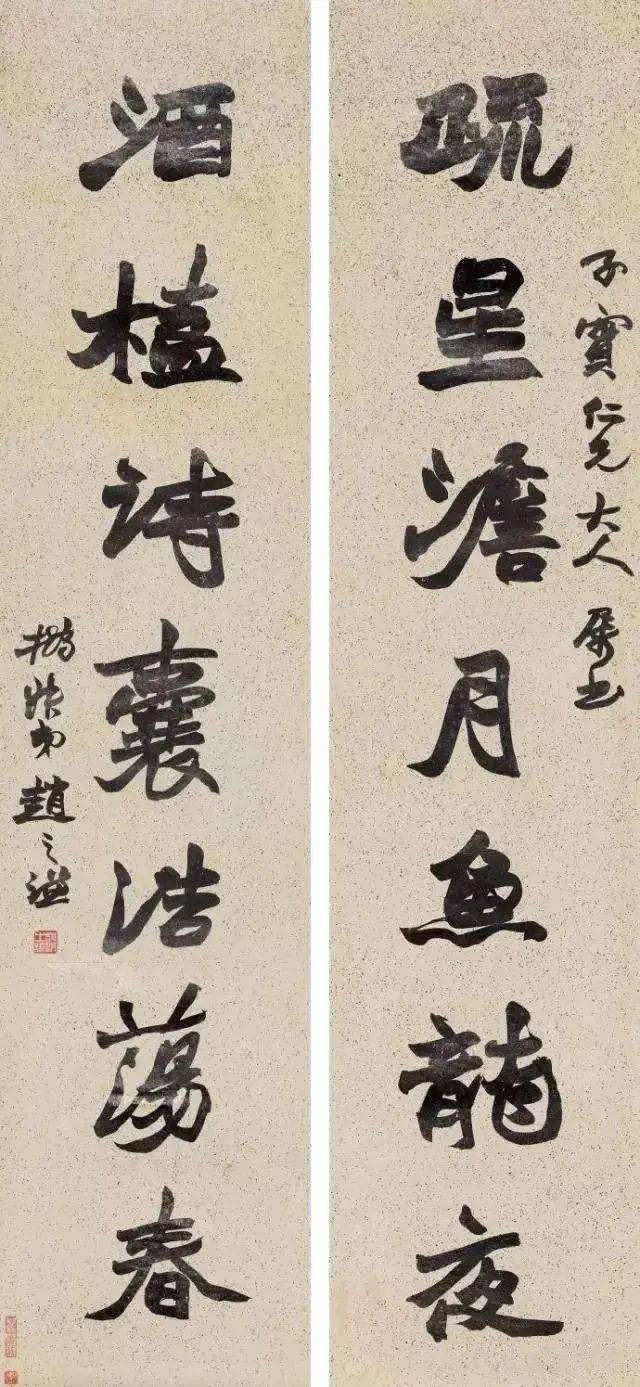 疏星澹月魚龍夜
子寶仁兄大人屬書
酒榼詩囊浩蕩春
撝叔弟趙之謙